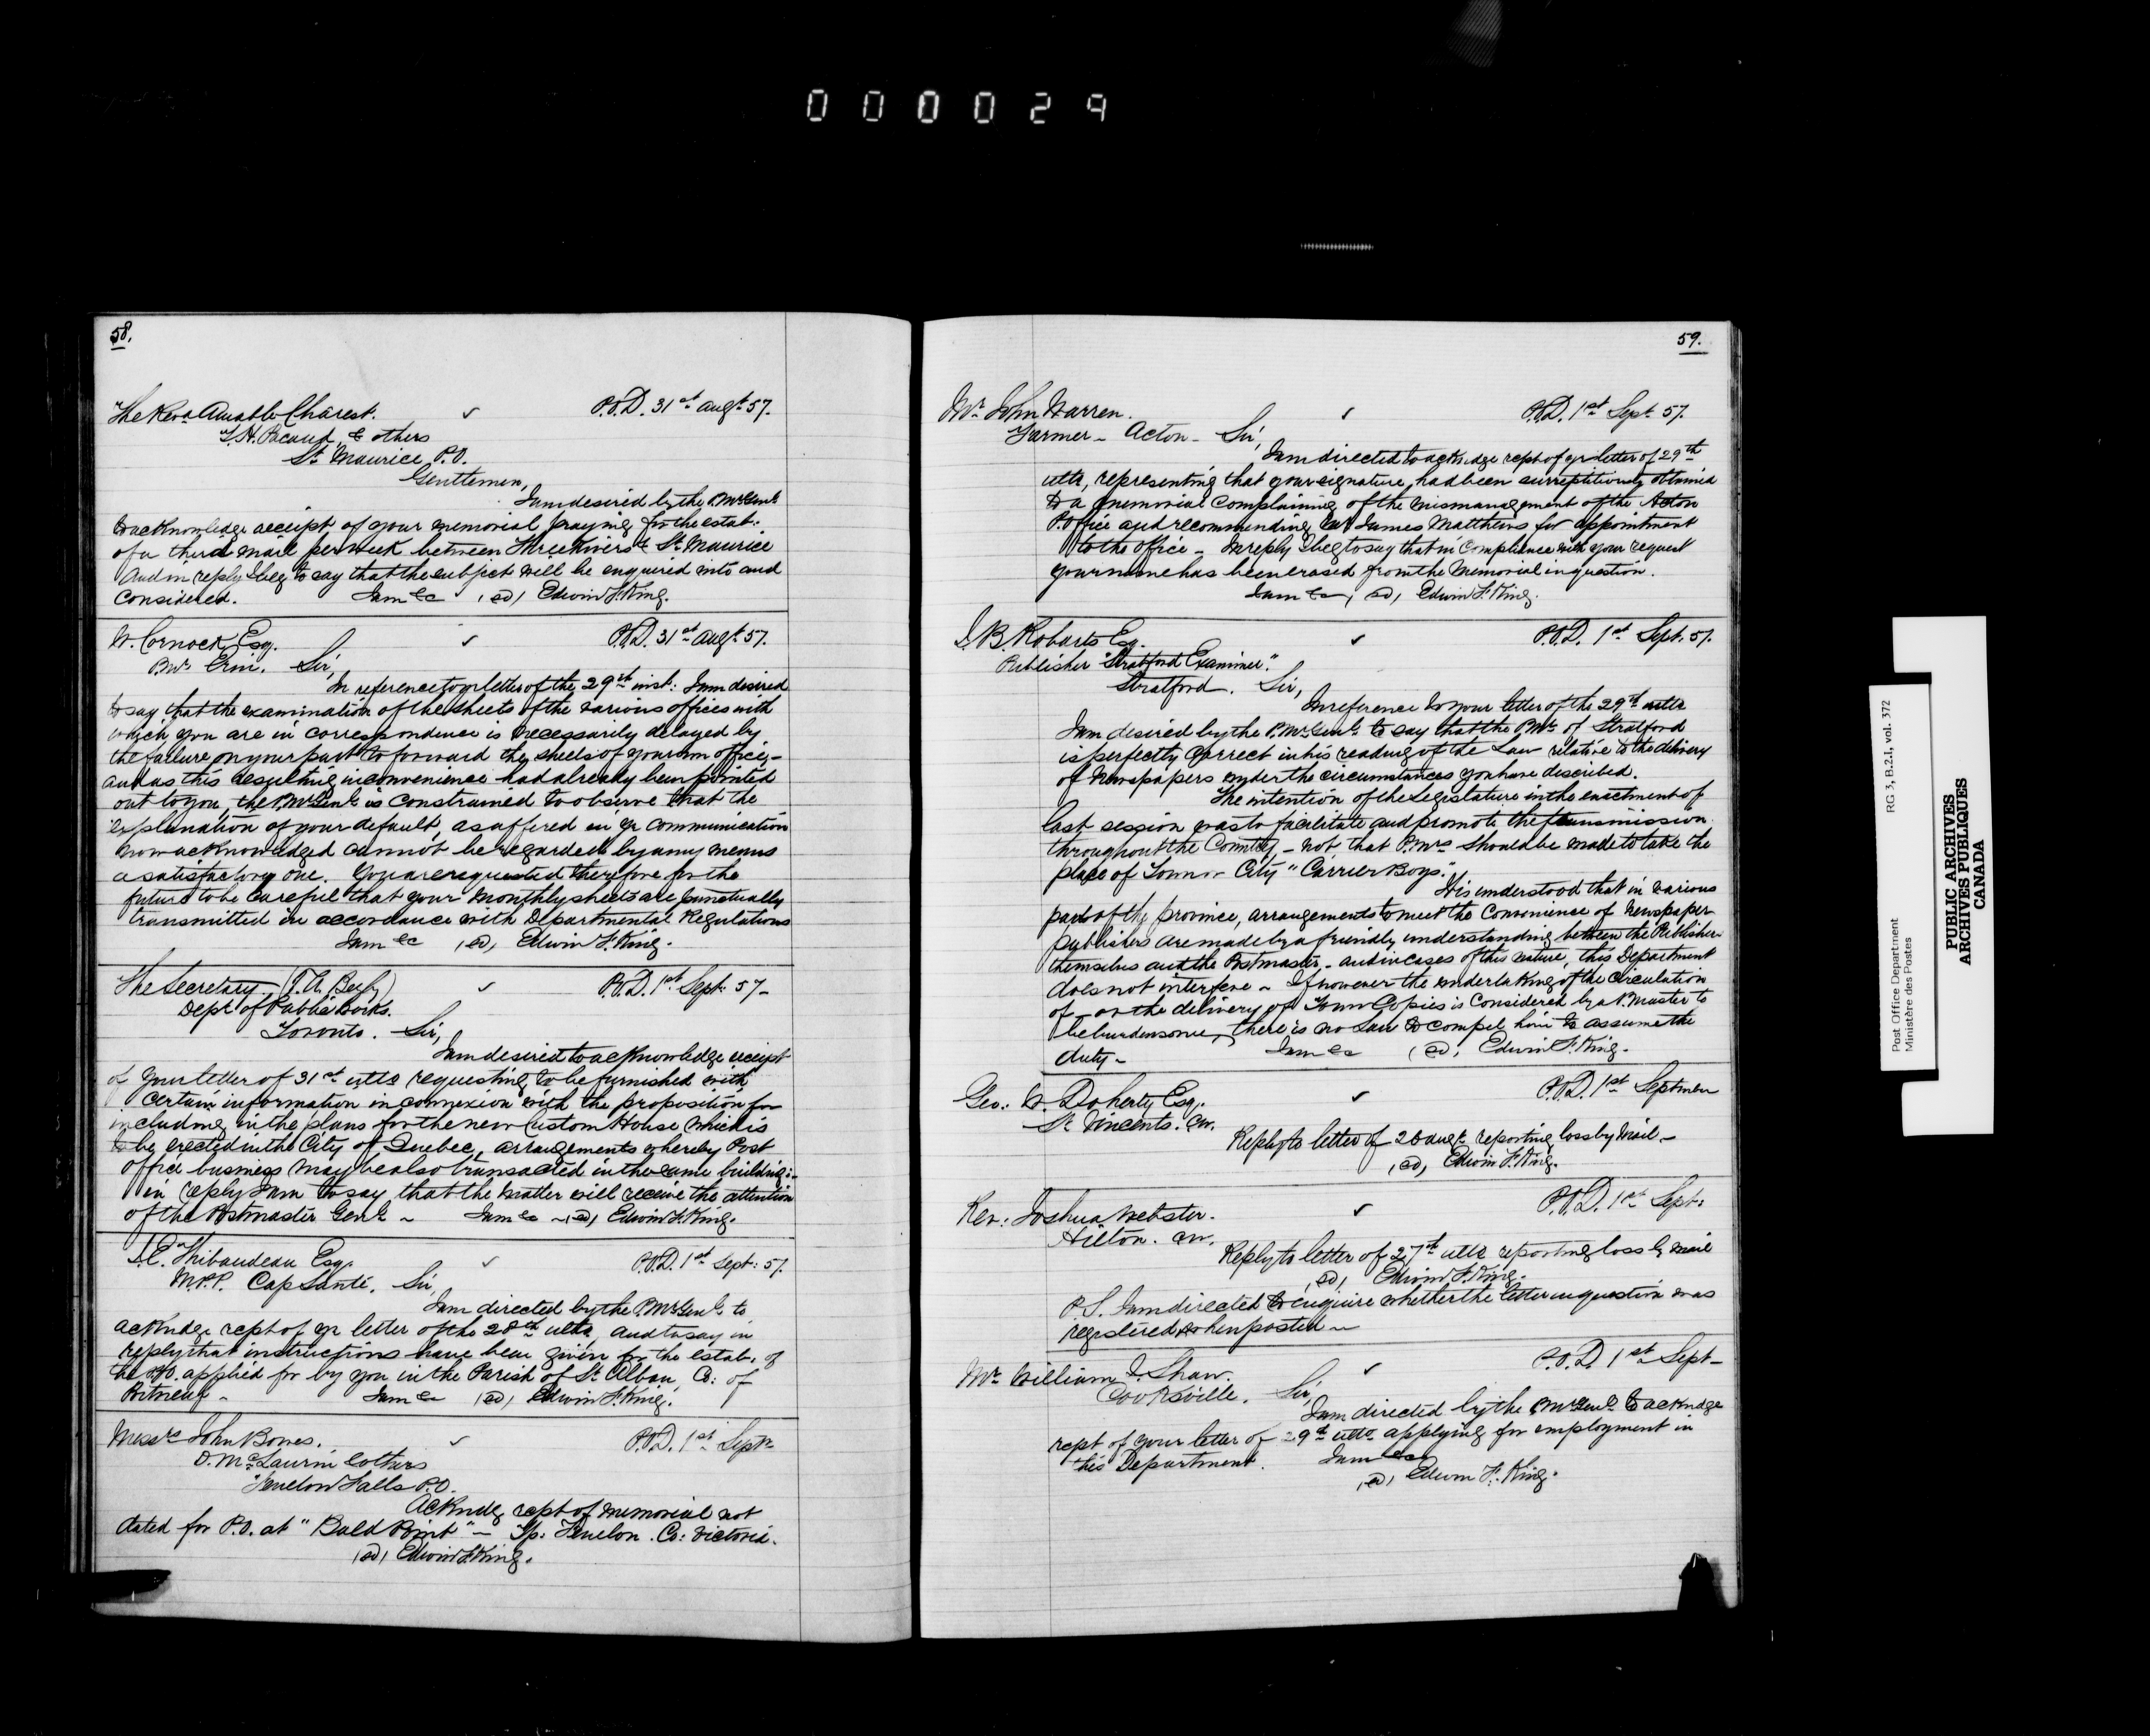 000029
58.
The Revd Amable Charest. ✓ P.O.D. 31st Augt 57.
T. H. Pacaud, & others
St Maurice P.O.
Gentlemen,
I am desired by the P. Mr Genl
to acknowledge receipt of your memorial praying for the estab:
of a third mail per week between Three Rivers & St Maurice
And in reply I beg to say that the subject will be enquired into and
considered. I am &c (sd) Edwin F. King.
W. Cornock Esq. ✓ P.O.D. 31st Augt 57.
P.Mr Erin. Sir,
In reference to yr letter of the 29th inst: I am desired
to say that the examination of the sheets of the various offices with
which you are in correspondence is necessarily delayed by
the failure on your part to forward the sheets of your own office,-
and as this resulting inconvenience had already been pointed
out to you, the P.Mr Genl is constrained to observe that the
explanation of your default, as offered in yr communication
now acknowledged cannot be regarded by any means
a satisfactory one. You are requested therefore for the
future to be careful that your monthly sheets are punctually
transmitted in accordance with Departmental Regulations
I am &c (sd) Edwin F. King.
The Secretary (T. A. Begly) ✓ P.O.D. 1st Sept: 57-
Dept of Public Works.
Toronto. Sir,
I am desired to acknowledge receipt
of your letter of 31st ulto requesting to be furnished with
certain information in connexion with the proposition for
including in the plans for the new Custom House which is
to be erected in the City of Quebec, arrangements whereby Post
office business may be also transacted in the same building:-
in reply I am to say that the matter will receive the attention
of the Postmaster Genl - I am &c - (sd) Edwin F. King.
J. E. Thibaudeau Esq. ✓ P.O.D. 1st Sept: 57.
M.P.P. Cap Santé. Sir,
I am directed by the P.Mr Genl to
ackndge rcpt of yr letter of the 28th ulto, and to say in
reply that instructions have been given for the estab: of
the P.O. applied for by you in the Parish of St Alban, Co: of
Portneuf - I am &c (sd) Edwin F. King.
Messrs John Bowes. ✓ P.O.D. 1st Septr
D. McLaurin & others
Fenelon Falls P.O.
Ackndg rcpt of memorial not
dated for P.O. at "Bald Point" - Tp: Fenelon. Co: Victoria.
(sd) Edwin F. King.
59.
Mr John Warren. ✓ P.O.D. 1st Sept 57.
Farmer - Acton - Sir,
I am directed to acknwdge rcpt of yr letter of 29th
ulto, representing that your signature, had been surreptitiously obtained
to a memorial complaining of the mismanagement of the Acton
P. Office and recommending Mr James Matthews for appointment
to the office - In reply I beg to say that in compliance with your request
your name has been erased from the memorial in question.
I am &c, (sd) Edwin F. King.
I. B. Robarts Esq. ✓ P.O.D. 1st Sept. 57.
Publisher "Stratford Examiner".
Stratford. Sir,
In reference to your letter of the 29th ulto
I am desired by the P.Mr Genl to say that the P.Mr of Stratford
is perfectly correct in his reading of the Law relative to the delivery
of Newspapers under the circumstances you have described.
The intention of the Legislature in the enactment of
last session was to facilitate and promote the transmission
throughout the Country - not that P.Mrs should be made to take the
place of Town or City "Carrier Boys."
It is understood that in various
parts of the province, arrangements to meet the convenience of Newspaper
publishers are made by a friendly understanding between the Publishers
themselves and the Postmaster - and in cases of this nature, this Department
does not interfere - If however the undertaking of the circulation
of - or the delivery of Town Copies is considered by a P.Master to
be burdensome, there is no Law to compel him to assume the
duty - I am &c (sd) Edwin F. King.
Geo: W. Doherty Esq. ✓ P.O.D. 1st Septmber
St Vincents. CW.
Reply to letter of 26 augt reporting loss by Mail -
(sd) Edwin F. King.
Rev: Joshua Webster. ✓ P.O.D. 1st Sept:
Hilton. CW.
Reply to letter of 27th ulto reporting loss by mail
(sd) Edwin F. King.
P.S. I am directed to enquire whether the letter in question was
registered when posted -
Mr William I. Shaw. ✓ P.O.D. 1st Sept-
Cooksville. Sir,
I am directed by the P.Mr Genl to acknwdge
rcpt of your letter of 29th ulto applying for employment in
this Department. I am &c
(sd) Edwin F. King.
Post Office Department
Ministère des Postes
RG 3, B.2.1, vol. 372
PUBLIC ARCHIVES
ARCHIVES PUBLIQUES
CANADA